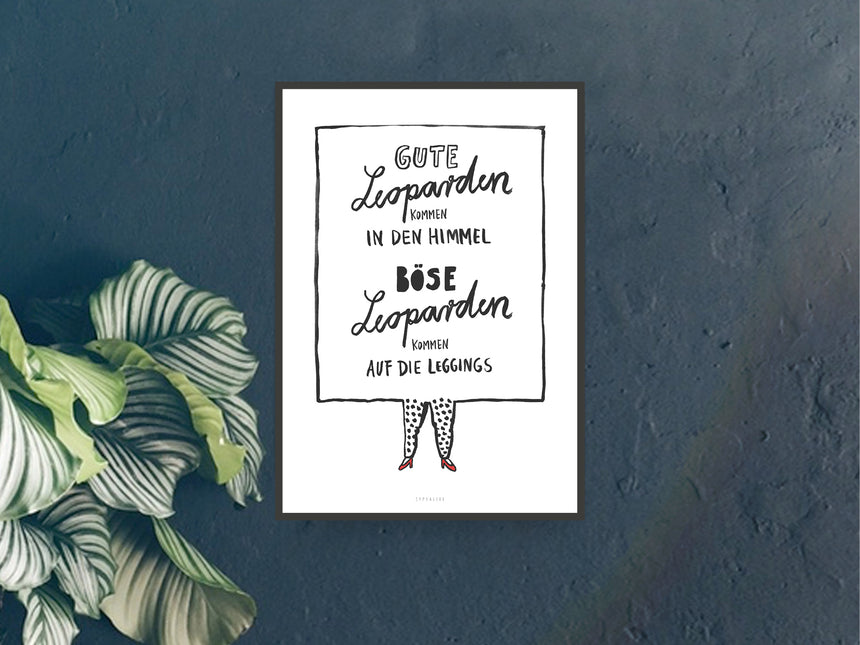 GUTE
Leoparden
KOMMEN
IN DEN HIMMEL
BÖSE
Leoparden
KOMMEN
AUF DIE LEGGINGS